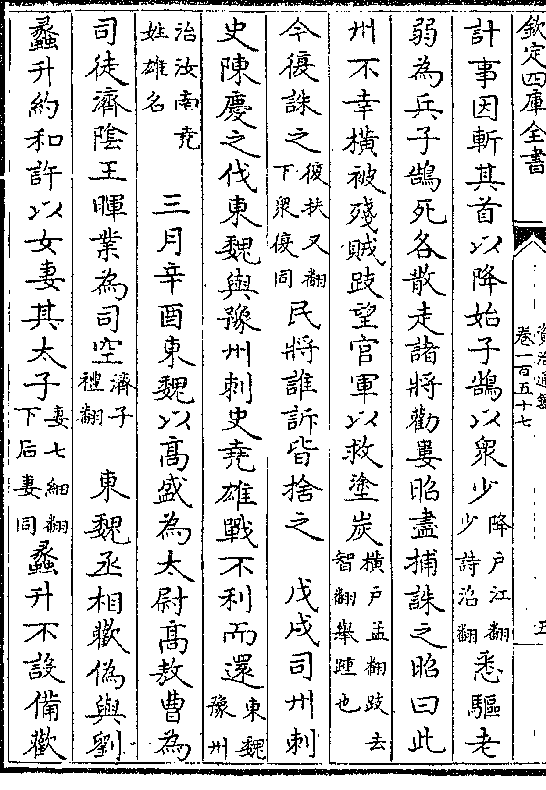 欽定四庫全書
資治通鑑
卷一百五十七
五
計事因斬其首以降始子鵠以衆少降户江翻少詩沼翻悉驅老
弱為兵子鵠死各散走諸將勸婁昭盡捕誅之昭曰此
州不幸橫被殘賊跂望官軍以救塗炭橫户孟翻跂去智翻舉踵也
今復誅之復扶又翻下衆復同民將誰訴皆捨之 戊戌司州刺
史陳慶之伐東魏與豫州刺史堯雄戰不利而還東魏豫州
治汝南堯姓雄名 三月辛酉東魏以高盛為太尉高敖曹為
司徒濟隂王暉業為司空濟子禮翻 東魏丞相歡偽與劉
蠡升約和許以女妻其太子妻七細翻下后妻同蠡升不設備歡